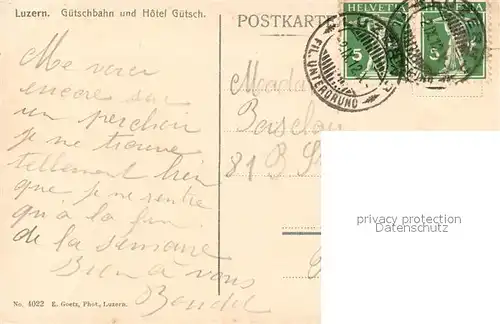 Luzern. Gütschbahn und Hôtel Gütsch.
POSTKARTE
HELVETIA
HELVETIA
5
5
LUZERN
FIL. UNTERGRUND
Me voici
encore sur
un perchoir
je me trouve
tellement bien
que je ne rentre
qu'à la fin
de la semaine
Bien à vous
Madame
81 B
privacy protection
for address data
No. 4022 E. Goetz, Phot., Luzern.